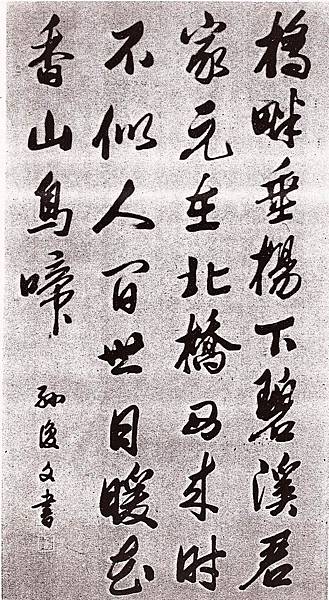 橋畔垂楊下碧溪君
家元在北橋西来时
不似人间世日暖花
香山鳥啼
孙文書